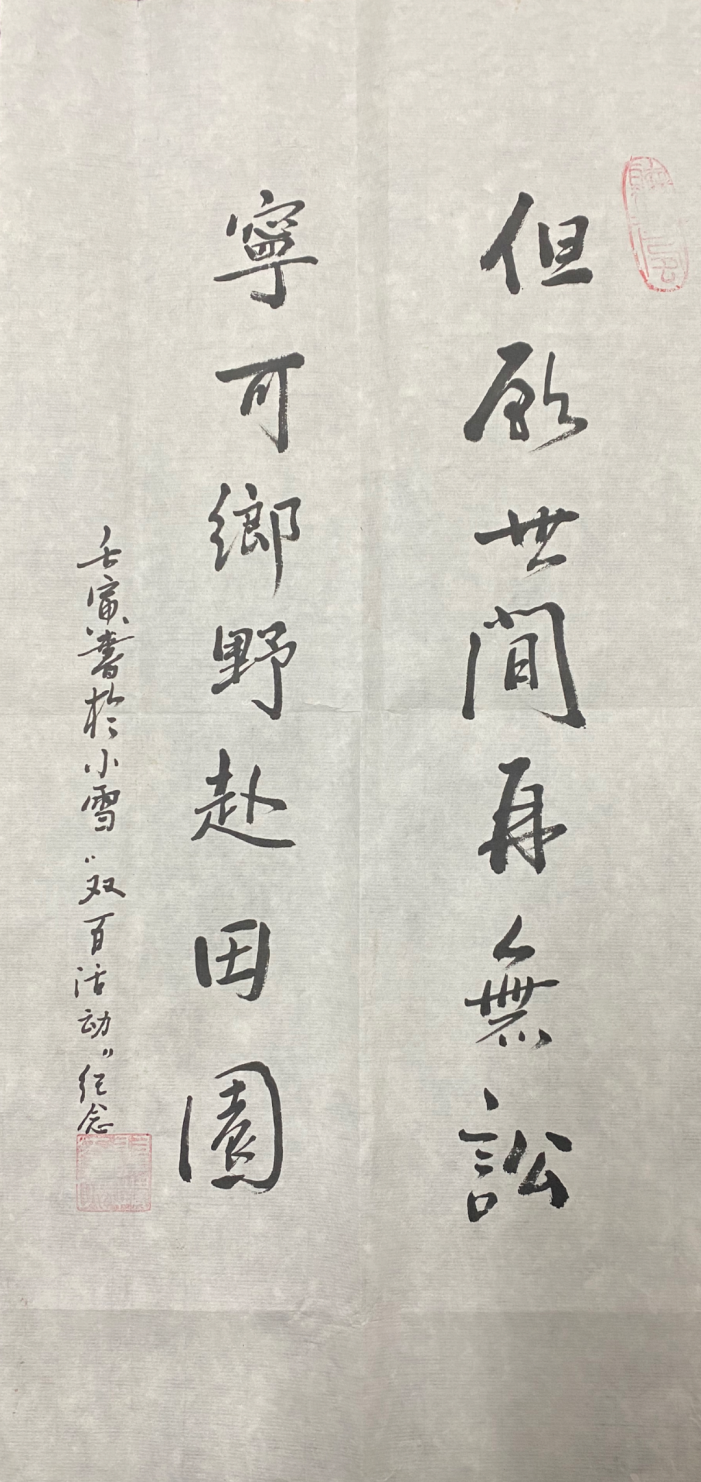 但願世間再無訟
寧可鄉野赴田園
壬寅書於小雪"双百活动"纪念